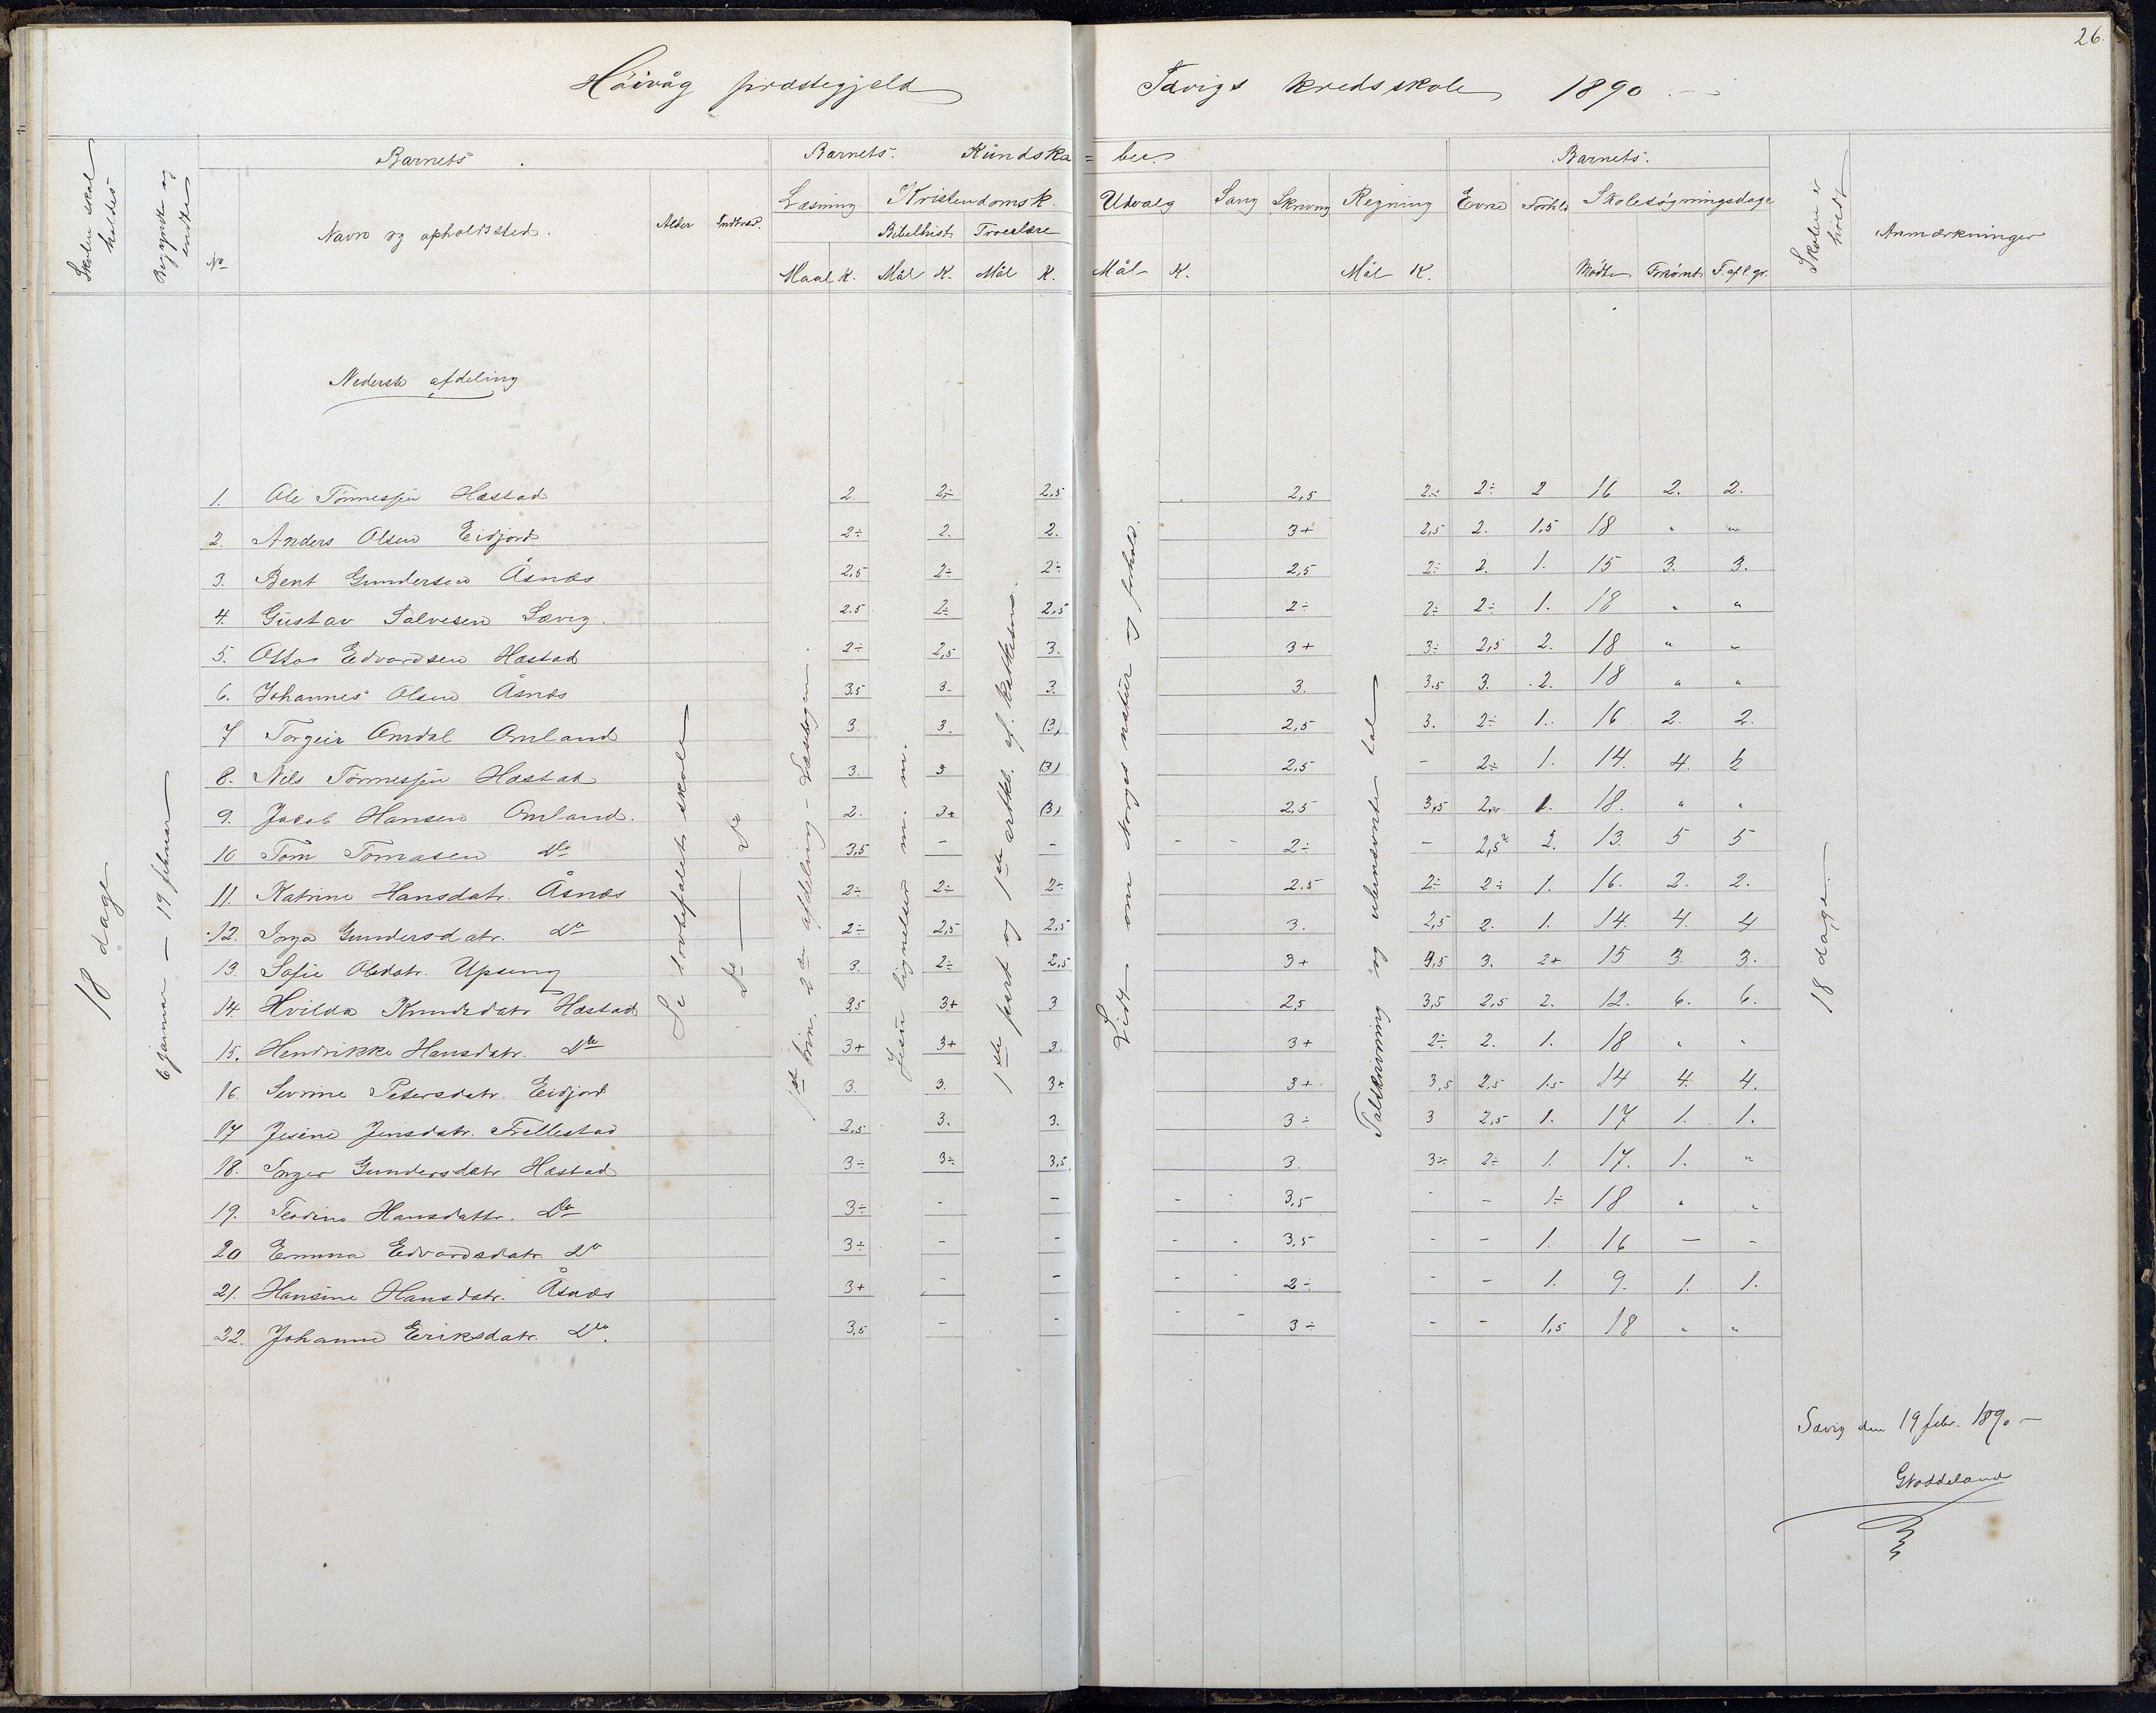 26.
Höivåg præstegjeld Sævigs kredsskole 1890
Skolen skal holdes
Begyndte og endte
Barnets
No
Navn og opholdssted.
Alder
Indtræd.
Barnets. Kundska = ber
Læsning Kristendomsk.
Bibelhist. Troeslære
Maal K. Mål K. Mål K.
Udvalg Sang Skrivng Regning
Mål K. Mål K.
Barnets.
Evne Forhld Skolesøgningsdage
Mødte Forsømt F. af l. gr.
Skolen er holdt
Anmærkninger
Nederste afdeling
18 dage
6 januar — 19 februar
Se lovbefalet skole
Do — Do
1ste trin, 2den afdeling - Læsebogen.
Jesu lignelser m. m.
1ste part og 1ste artkl. af katkismus.
Lidt om Norges natur og forhold.
Talskrivning og ubenævnte tal
18 dage
1. Ole Tönnessen Hæstad 2. 2÷ 2,5 2,5 2÷ 2÷ 2 16 2. 2.
2. Anders Olsen Eidjord 2÷ 2. 2. 3+ 2,5 2. 1,5 18 " "
3. Bent Gundersen Åsnæs 2,5 2÷ 2÷ 2,5 2÷ 2. 1. 15 3. 3.
4. Gustav Salvesen Sævig. 2.5 2÷ 2,5 2÷ 2÷ 2÷ 1. 18 " "
5. Otto Edvardsen Hæstad 2÷ 2,5 3. 3+ 3÷ 2,5 2. 18 " "
6. Johannes Olsen Åsnæs 3,5 3. 3. 3. 3.5 3. 2. 18 " "
7 Torgeir Omdal Omland 3. 3. (3) 2,5 3. 2÷ 1. 16 2. 2.
8. Nils Tönnessen Hæstad 3. 3 (3) 2,5 - 2÷ 1. 14. 4.
9. Jacob Hansen Omland. 2. 3+ (3) 2,5 3,5 1. 18. " "
10 Tom Tomasen Do 3,5 - - - - 2÷ - 2,5 2. 13. 5 5
11. Katrine Hansdatr. Åsnæs 2÷ 2÷ 2÷ 2.5 2÷ 2÷ 1. 16. 2. 2.
12. Inga Gundersdatr. Do 2÷ 2,5 2,5 3. 2,5 2. 1. 14. 4. 4
13. Sofie Olsdatr. Upseng 3. 2÷ 2,5 3+ 3. 2+ 15 3. 3.
14. Hvilda Knudsdatr Hæstad 3,5 3+ 3 2,5 3,5 2,5 2. 12. 6. 6.
15. Hendrikke Hansdatr. Do 3+ 3+ 3. 3+ 2÷ 2. 1. 18 " "
16. Sevrine Petersdatr. Eidjord 3. 3. 3+ 3+ 3,5 2,5 1.5 14 4. 4.
17 Jesine Jensdatr. Trellestad 2,5 3. 3. 3÷ 3 2,5 1. 17 1. 1.
18. Inger Gundersdatr Hæstad 3÷ 3÷ 3,5 3. 3÷ 2÷ 1. 17. 1. "
19. Teodine Hansdattr. Do 3÷ - - - - 3,5 - - 1÷ 18 " "
20 Emma Edvardsdatr. Do 3÷ - - - - 3,5 - - 1. 16 - -
21. Hansine Hansdatr. Åsnæs 3+ - - - - 2÷ - - 1. 9. 1. 1.
22. Johanne Eriksdatr. Do. 3,5 - - - - 3÷ - - 1,5 18 " "
Sævig den 19 febr. 1890
GNoddeland